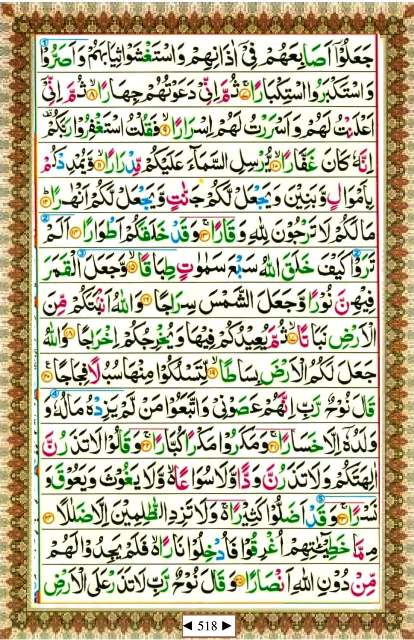 جَعَلُوْۤا اَصَابِعَهُمْ فِيْۤ اٰذَانِهِمْ وَاسْتَغْشَوْا ثِيَابَهُمْ وَاَصَرُّوْا
وَاسْتَكْبَرُوا اسْتِكْبَارًا ۝٧ ثُمَّ اِنِّيْ دَعَوْتُهُمْ جِهَارًا ۝٨ ثُمَّ اِنِّيْۤ
اَعْلَنْتُ لَهُمْ وَاَسْرَرْتُ لَهُمْ اِسْرَارًا ۝٩ فَقُلْتُ اسْتَغْفِرُوْا رَبَّكُمْ
اِنَّهٗ كَانَ غَفَّارًا ۝١٠ يُّرْسِلِ السَّمَآءَ عَلَيْكُمْ مِّدْرَارًا ۝١١ وَّيُمْدِدْكُمْ
بِاَمْوَالٍ وَّبَنِيْنَ وَيَجْعَلْ لَّكُمْ جَنّٰتٍ وَّيَجْعَلْ لَّكُمْ اَنْهٰرًا ۝١٢
مَا لَكُمْ لَا تَرْجُوْنَ لِلّٰهِ وَقَارًا ۝١٣ وَقَدْ خَلَقَكُمْ اَطْوَارًا ۝١٤ اَلَمْ
تَرَوْا كَيْفَ خَلَقَ اللّٰهُ سَبْعَ سَمٰوٰتٍ طِبَاقًا ۝١٥ وَّجَعَلَ الْقَمَرَ
فِيْهِنَّ نُوْرًا وَّجَعَلَ الشَّمْسَ سِرَاجًا ۝١٦ وَاللّٰهُ اَنْۢبَتَكُمْ مِّنَ
الْاَرْضِ نَبَاتًا ۝١٧ ثُمَّ يُعِيْدُكُمْ فِيْهَا وَيُخْرِجُكُمْ اِخْرَاجًا ۝١٨ وَاللّٰهُ
جَعَلَ لَكُمُ الْاَرْضَ بِسَاطًا ۝١٩ لِّتَسْلُكُوْا مِنْهَا سُبُلًا فِجَاجًا ۝٢٠
قَالَ نُوْحٌ رَّبِّ اِنَّهُمْ عَصَوْنِيْ وَاتَّبَعُوْا مَنْ لَّمْ يَزِدْهُ مَالُهٗ وَ
وَلَدُهٗۤ اِلَّا خَسَارًا ۝٢١ وَمَكَرُوْا مَكْرًا كُبَّارًا ۝٢٢ وَقَالُوْا لَا تَذَرُنَّ
اٰلِهَتَكُمْ وَلَا تَذَرُنَّ وَدًّا وَّلَا سُوَاعًا ۙ وَّلَا يَغُوْثَ وَيَعُوْقَ وَ
نَسْرًا ۝٢٣ وَقَدْ اَضَلُّوْا كَثِيْرًا ۚ وَلَا تَزِدِ الظّٰلِمِيْنَ اِلَّا ضَلٰلًا ۝٢٤
مِمَّا خَطِيْٓـٰٔتِهِمْ اُغْرِقُوْا فَاُدْخِلُوْا نَارًا ۙ فَلَمْ يَجِدُوْا لَهُمْ
مِّنْ دُوْنِ اللّٰهِ اَنْصَارًا ۝٢٥ وَقَالَ نُوْحٌ رَّبِّ لَا تَذَرْ عَلَى الْاَرْضِ
◄ 518 ►